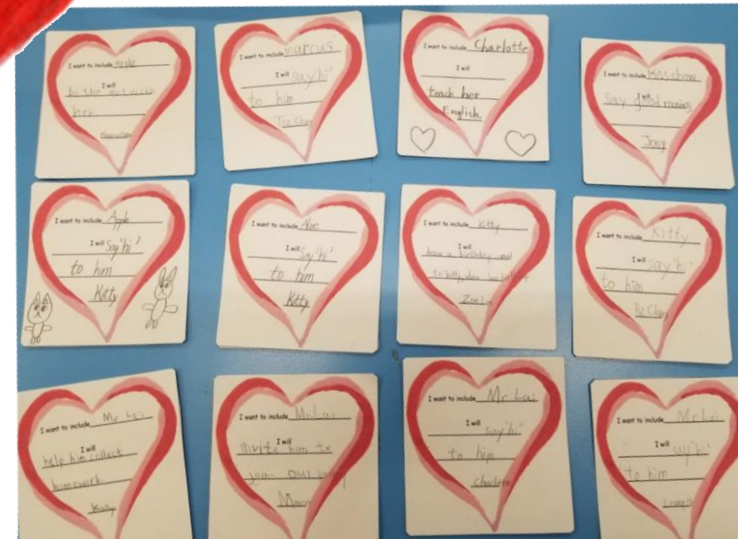 I want to include Apple
I will
do the art with
her
I want to include marcus
I will say 'hi'
to him
Tsz Ching
I want to include Charlotte
I will
teach her
English.
I want to include Miss chow
I will
say good morning
Joey
I want to include Apple
I will Say 'hi'
to him
Kitty
I want to include
I will Say 'hi'
to him
Kitty
I want to include Kitty
I will
have a birthday
to kitty
I want to include Kitty
I will say 'hi'
to him
Tsz Ching
I want to include Mr Lai
I will
help him collect
homework.
I want to include Mr Lai
I will
invite him to
join our
I want to include Mr Lai
I will say 'hi'
to him
Charlotte
I want to include Mr Lai
I will say 'hi'
to him